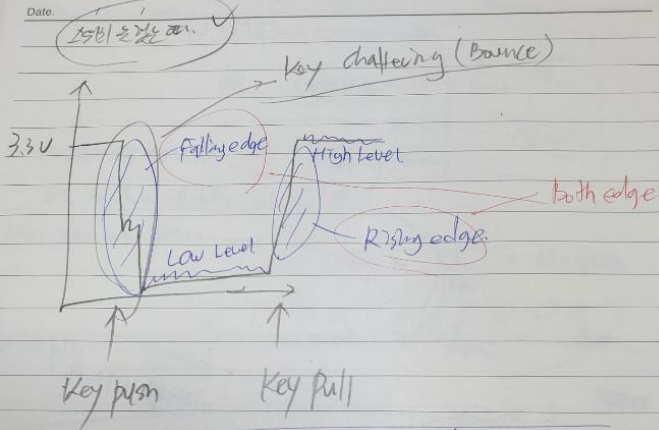 Date.
Key chattering (Bounce)
3.3V
Falling edge
High Level
Both edge
Low Level
Rising edge.
Key push
Key pull